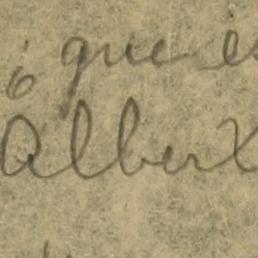 ó que es
Albert